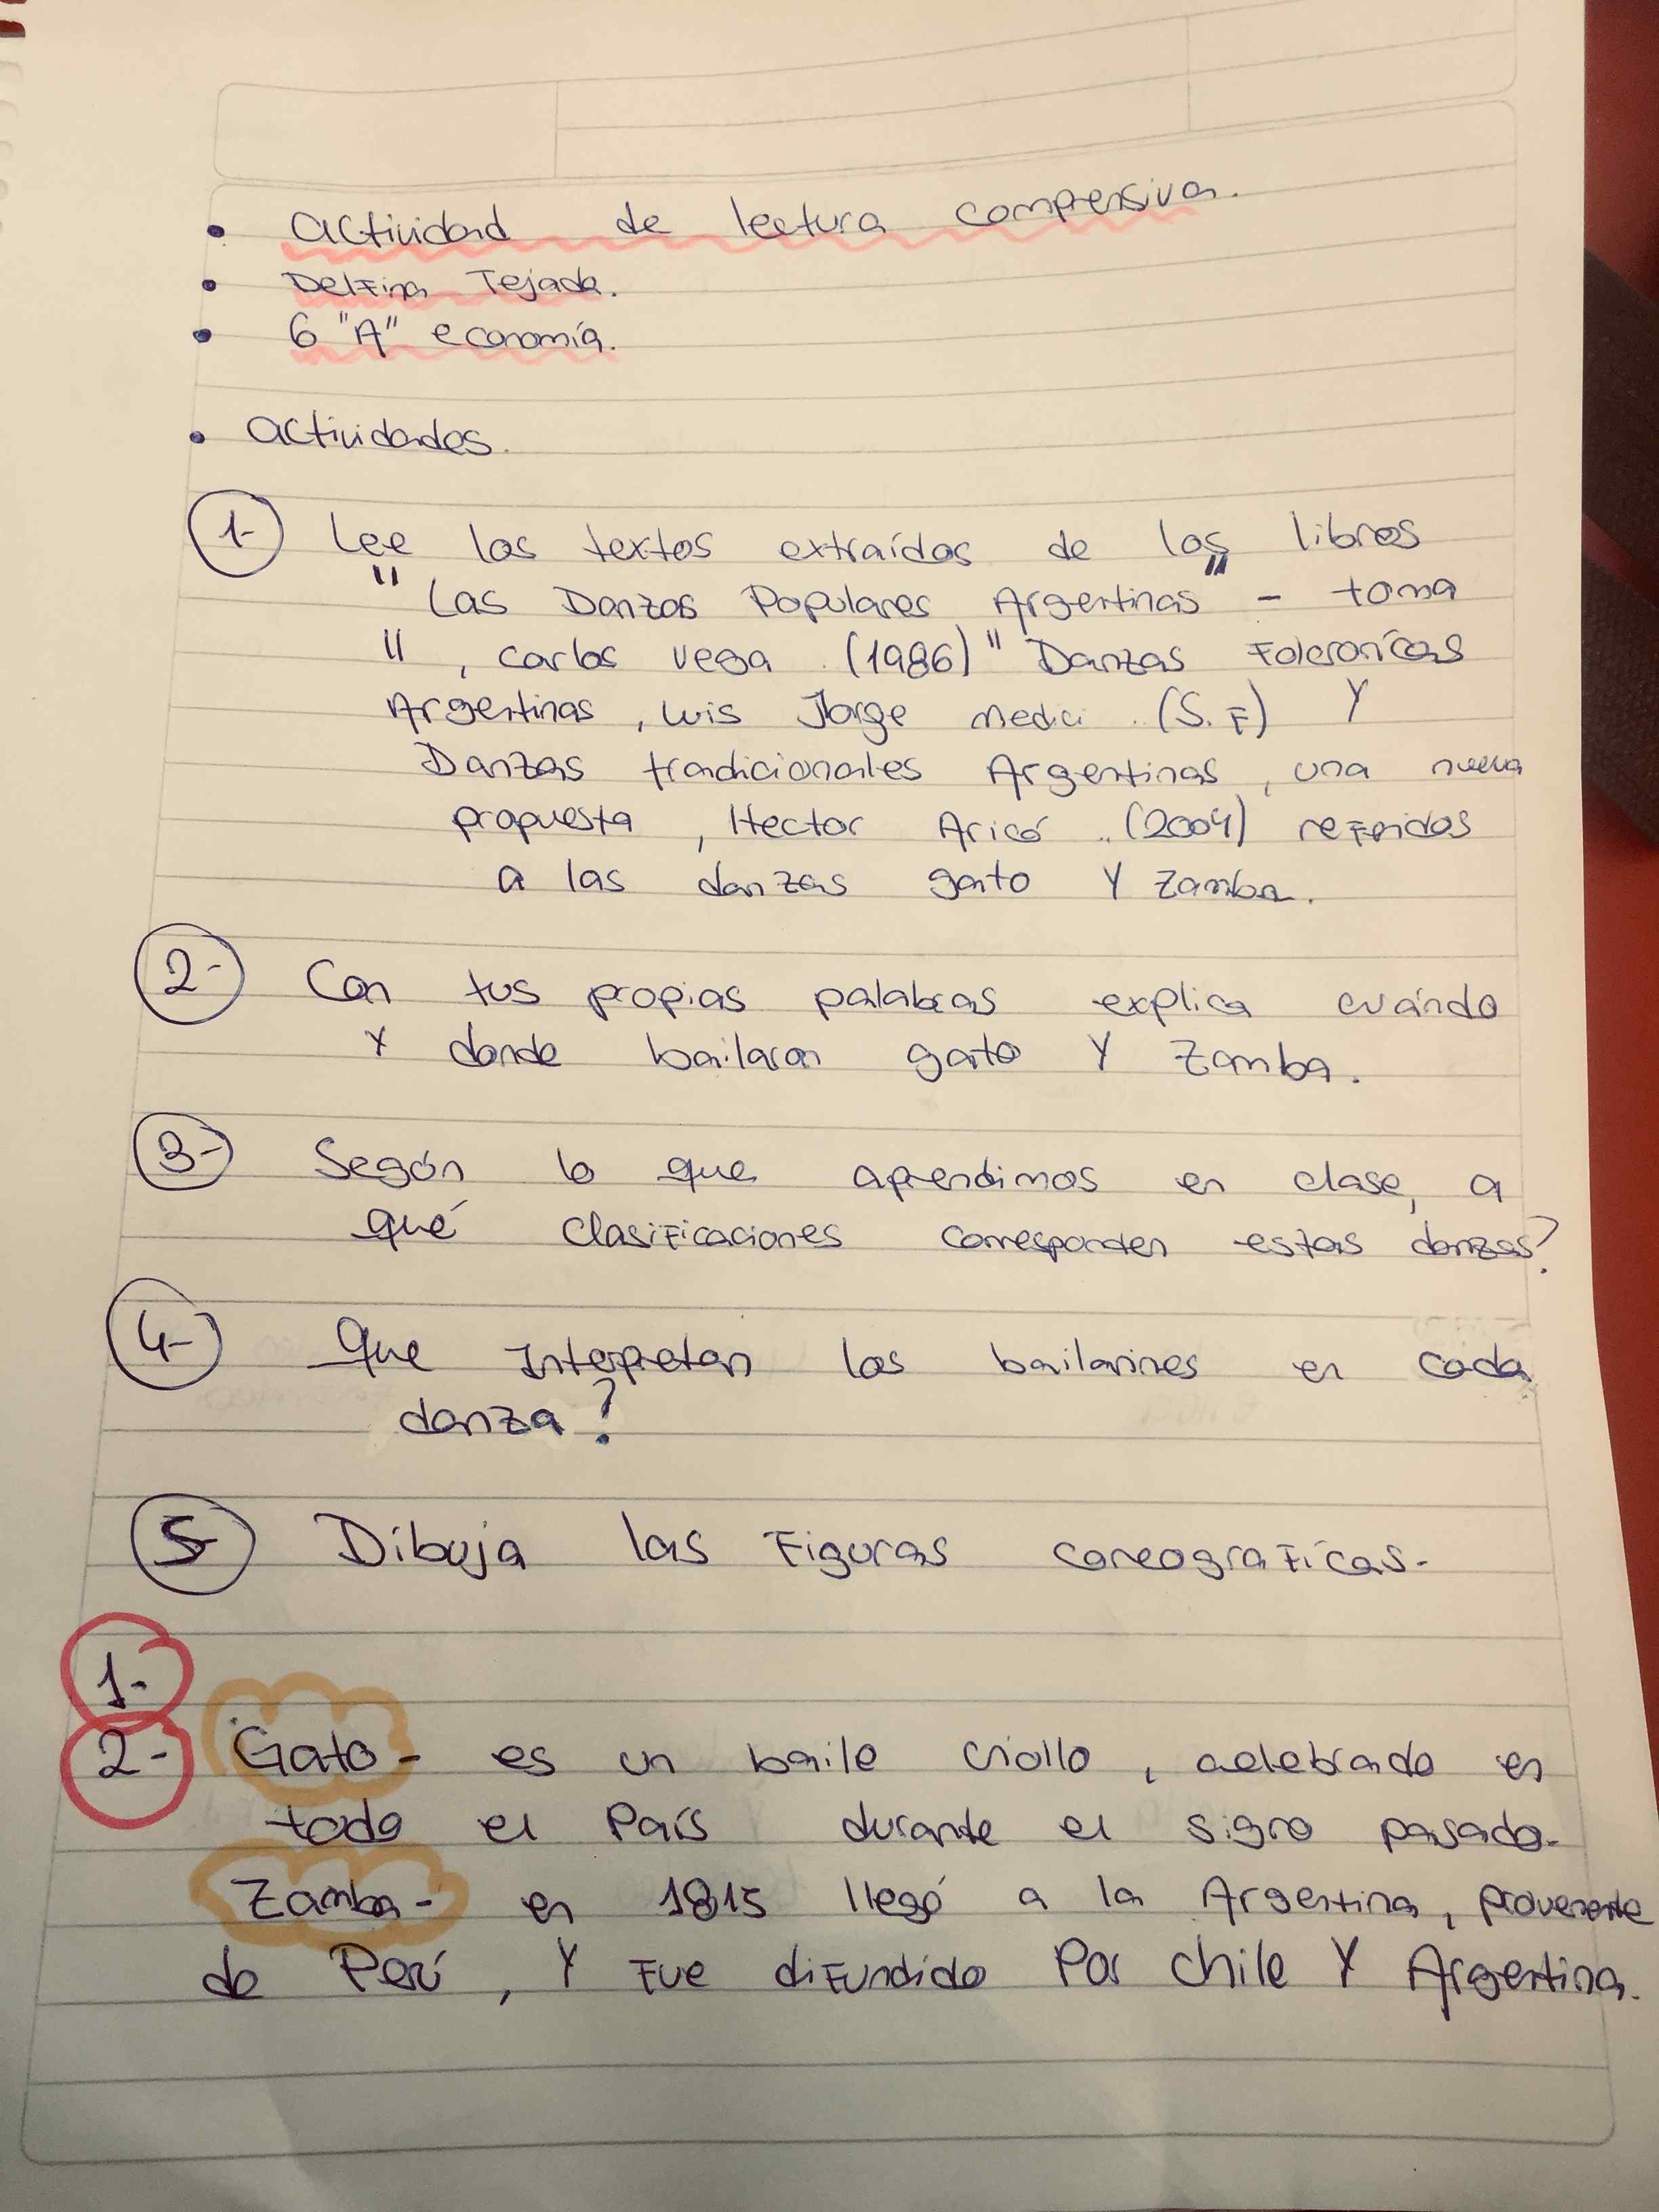 • Actividad de lectura comprensiva.
• Delfina Tejada.
• 6 "A" economía.
• Actividades.
1- Lee los textos extraídos de los libros
"Las Danzas Populares Argentinas" - toma
" , Carlos Vega (1986) " Danzas Folcroricas
Argentinas, Luis Jorge Medici (S.F) Y
Danzas tradicionales Argentinas, una nueva
propuesta, Hector Aricó (2004) referidos
a las danzas gato Y Zamba.
2- Con tus propias palabras explica cuándo
Y donde bailaron gato Y Zamba.
3- Según lo que aprendimos en clase, a
qué clasificaciones corresponden estas danzas?
4- Que Interpretan los bailarines en cada
danza?
5- Dibuja las Figuras coreograficas.
1-
2- Gato- es un baile criollo, celebrado en
todo el País durante el signo pasado.
Zamba- en 1815 llegó a la Argentina, proveniente
de Perú, Y Fue difundido Por Chile Y Argentina.